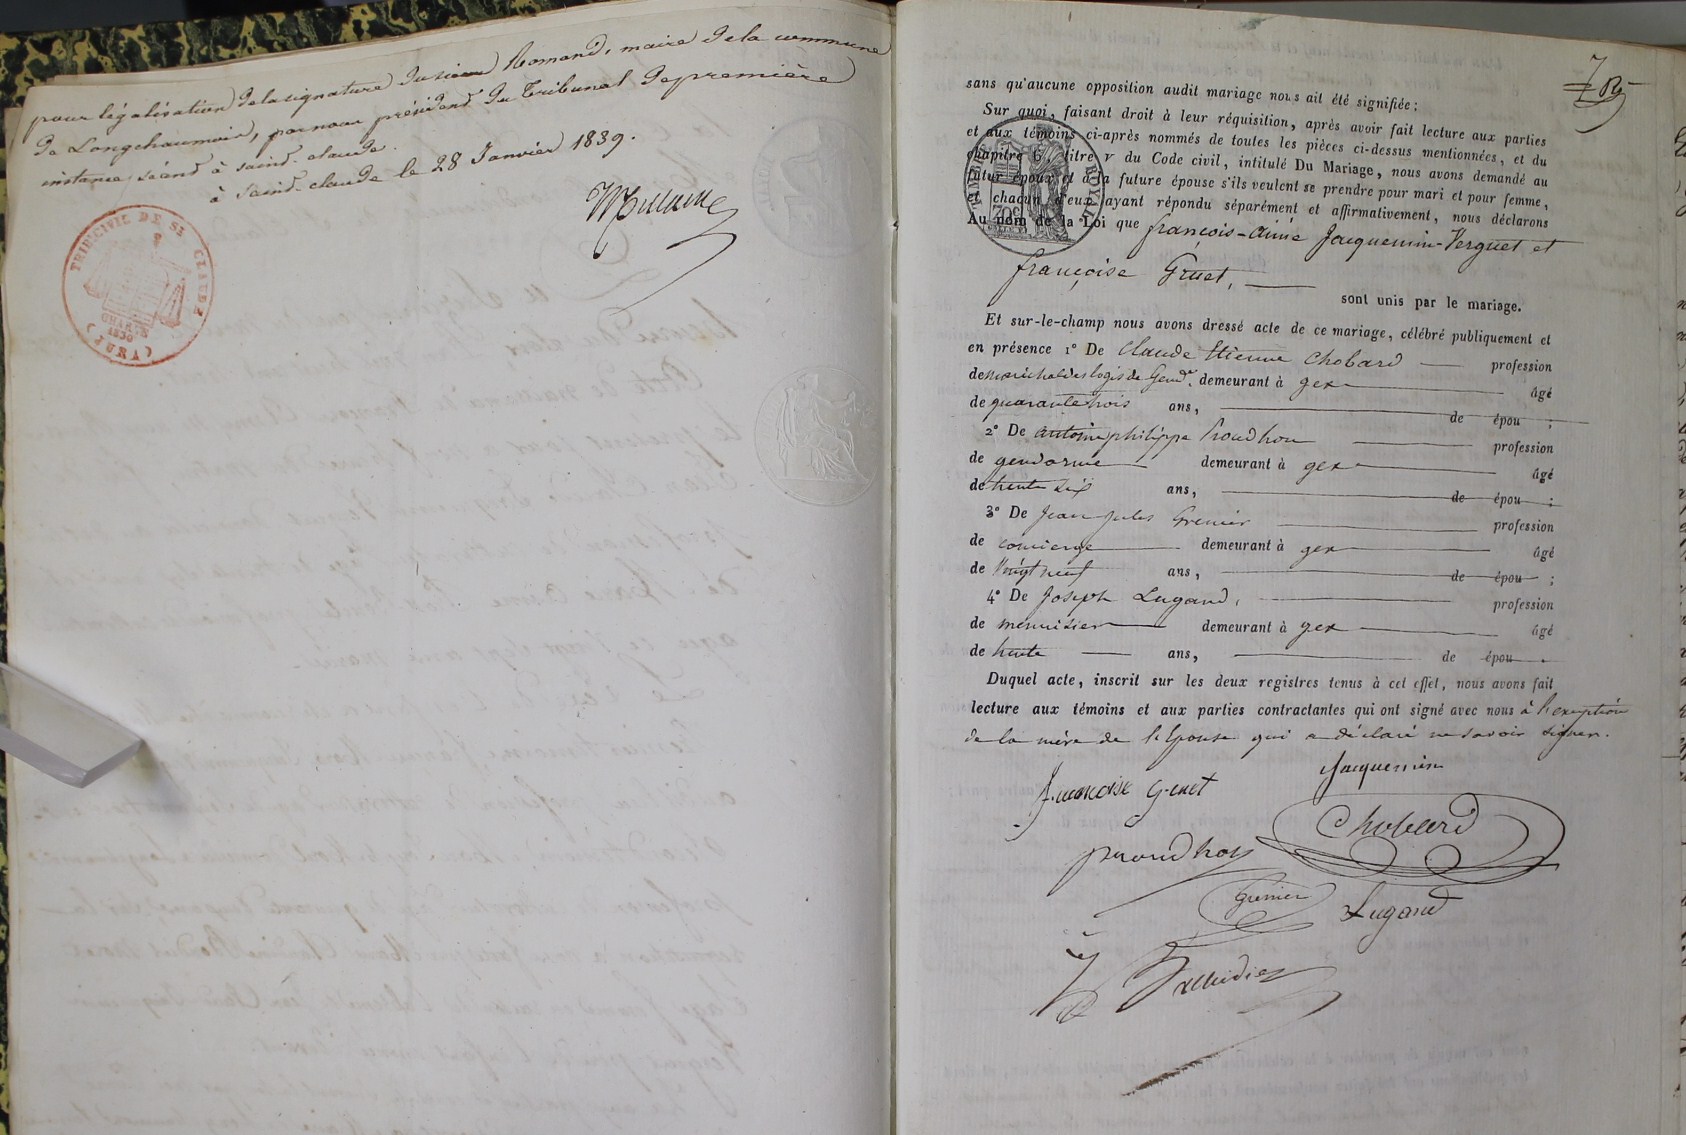 pour légalisation de la signature du sieur Romand, maire de la commune
de Longchaumois, par nous président du Tribunal de première
instance séand à saint-claude.
à saint-claude le 28 Janvier 1839.
TRIB. CIVIL DE ST CLAUDE
CHARTE
1830
(JURA)
sans qu'aucune opposition audit mariage nous ait été signifiée;
Sur quoi, faisant droit à leur réquisition, après avoir fait lecture aux parties
et aux témoins ci-après nommés de toutes les pièces ci-dessus mentionnées, et du
chapitre 6, titre v du Code civil, intitulé Du Mariage, nous avons demandé au
futur époux et à la future épouse s'ils veulent se prendre pour mari et pour femme,
et chacun d'eux ayant répondu séparément et affirmativement, nous déclarons
Au nom de la Loi que françois-aimé Jacquemin-Verguet et
françoise Gruet,
sont unis par le mariage.
TIMBRE ROYAL
70c
Et sur-le-champ nous avons dressé acte de ce mariage, célébré publiquement et
en présence 1° De Claude Etienne Chobard profession
de maréchal des logis de Gend.ie demeurant à gex âgé
de quarante trois ans, de épou ;
2° De antoine philippe Proudhon profession
de gendarme demeurant à gex âgé
de trente six ans, de épou ;
3° De Jean Jules Grenier profession
de concierge demeurant à gex âgé
de vingt neuf ans, de épou ;
4° De Joseph Lugand, profession
de menuisier demeurant à gex âgé
de trente ans, de épou .
Duquel acte, inscrit sur les deux registres tenus à cet effet, nous avons fait
lecture aux témoins et aux parties contractantes qui ont signé avec nous à l'exception
de la mère de l'Epouse qui a déclaré ne savoir signer.
Jacquemin
françoise Gruet
Chobard
proudhon
Grenier
Lugand